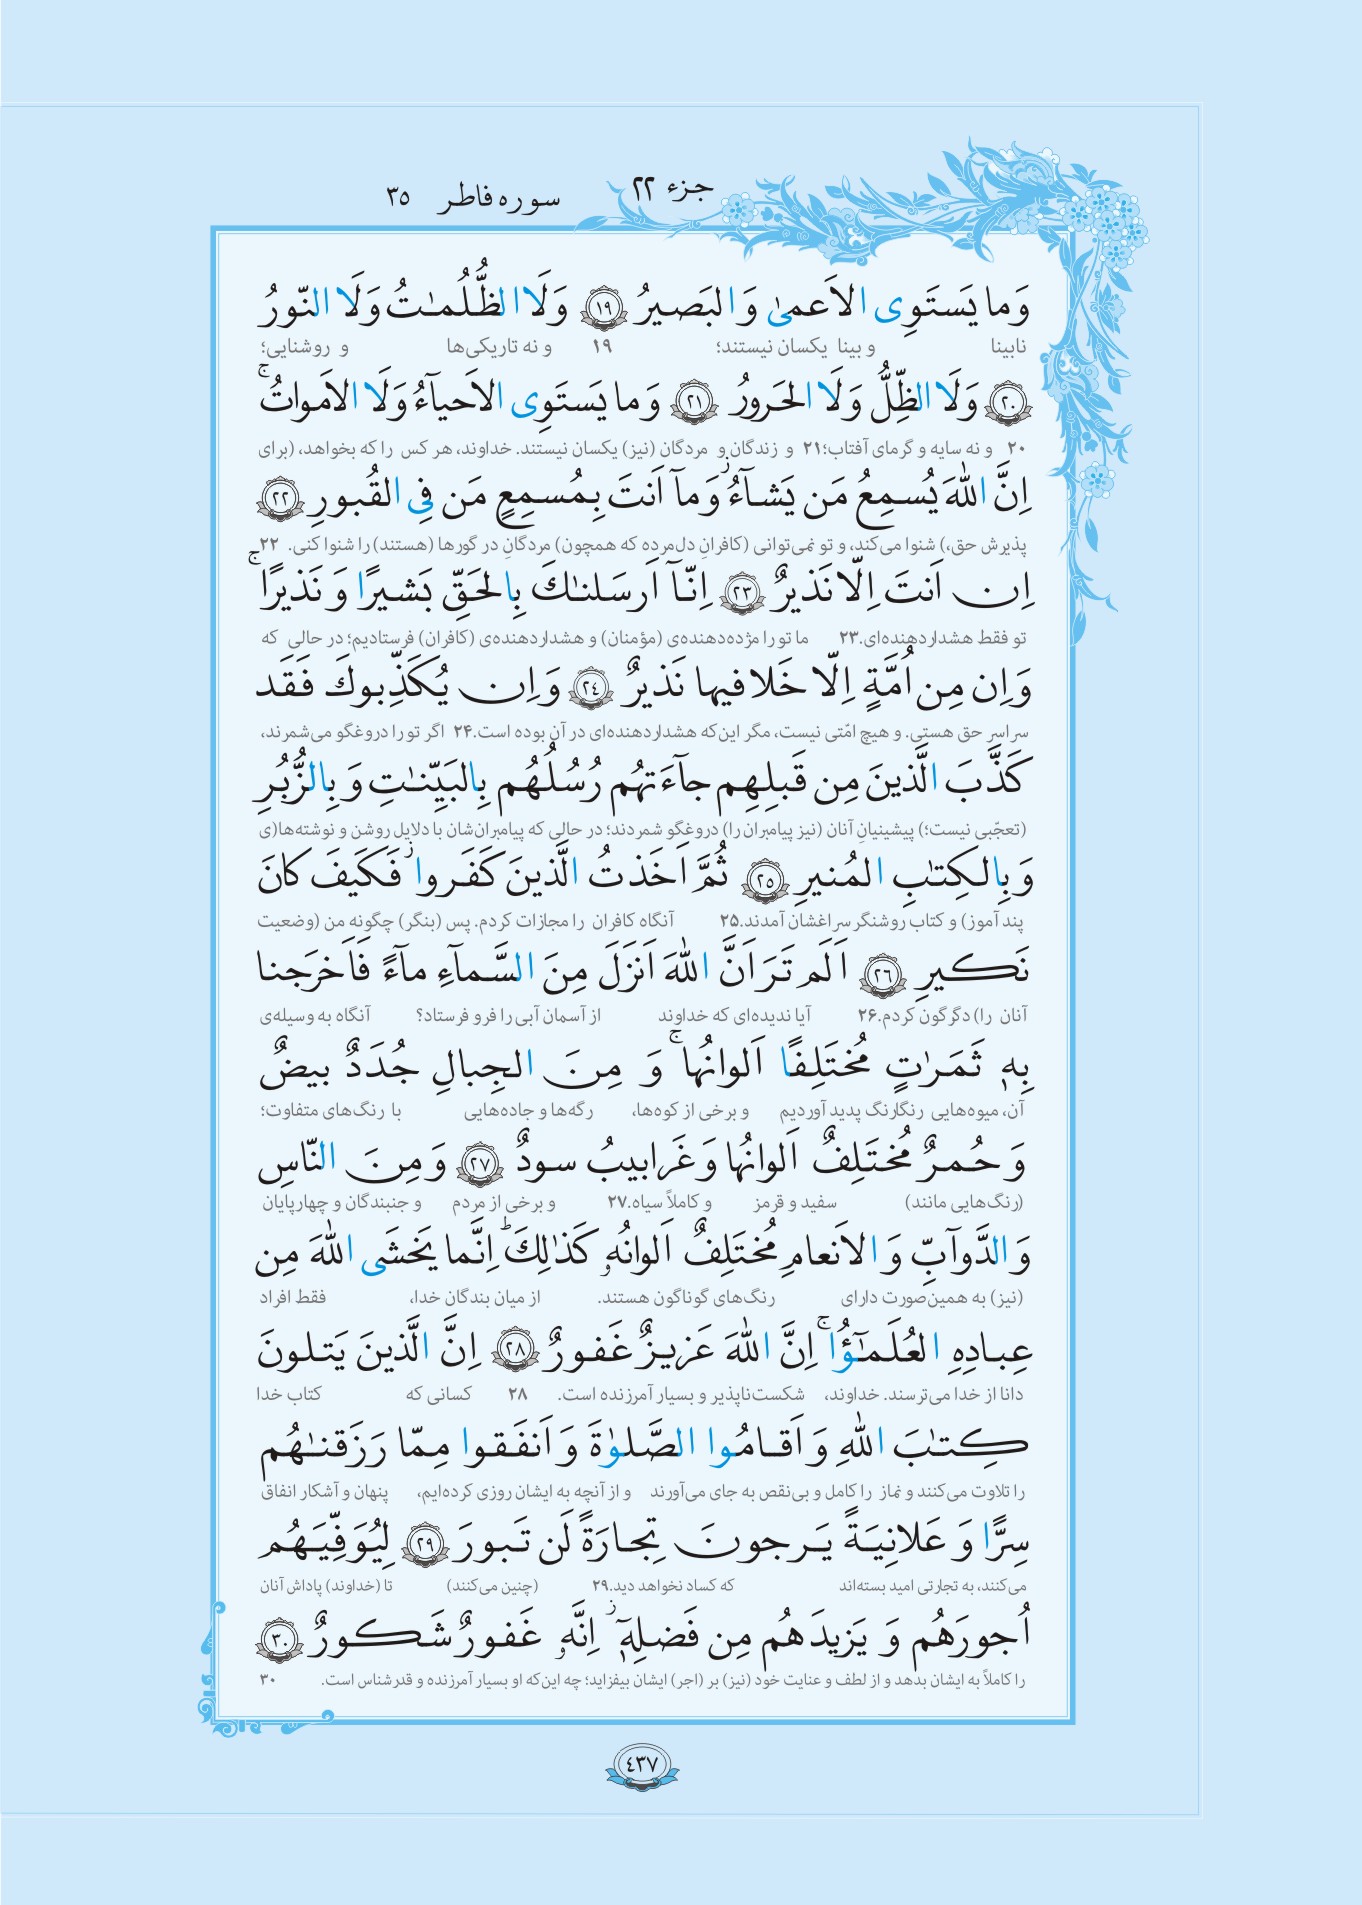 جزء ٢٢
سوره فاطر ٣٥
وَما يَستَوِى الاَعمىٰ وَ البَصيرُ ﴿١٩﴾ وَلَا الظُّلُمـٰتُ وَلَا النّورُ
نابینا و بینا یکسان نیستند؛ ۱۹ و نه تاریکی‌ها و روشنایی؛
﴿٢٠﴾ وَلَا الظِّلُّ وَلَا الحَرورُ ﴿٢١﴾ وَما يَستَوِى الاَحيآءُ وَلَا الاَمواتُ ۚ
۲۰ و نه سایه و گرمای آفتاب؛۲۱ و زندگان و مردگان (نیز) یکسان نیستند. خداوند، هر کس را که بخواهد، (برای
اِنَّ اللّٰهَ يُسمِعُ مَن يَشآءُ ز وَمآ اَنتَ بِمُسمِعٍ مَن فِى القُبورِ ﴿٢٢﴾
پذیرش حق،) شنوا می‌کند، و تو نمی‌توانی (کافرانِ دل‌مرده که همچون) مردگانِ در گورها (هستند) را شنوا کنی. ۲۲
اِن اَنتَ اِلّا نَذيرٌ ﴿٢٣﴾ اِنّآ اَرسَلنـٰكَ بِالحَقِّ بَشيرًا وَ نَذيرًا ۚ
تو فقط هشداردهنده‌ای.۲۳ ما تو را مژده‌دهنده‌ی (مؤمنان) و هشداردهنده‌ی (کافران) فرستادیم؛ در حالی که
وَاِن مِن اُمَّةٍ اِلّا خَلا فيها نَذيرٌ ﴿٢٤﴾ وَاِن يُكَذِّبوكَ فَقَد
سراسر حق هستی. و هیچ امّتی نیست، مگر این‌که هشداردهنده‌ای در آن بوده است.۲۴ اگر تو را دروغگو می‌شمرند،
كَذَّبَ الَّذينَ مِن قَبلِهِم جآءَتهُم رُسُلُهُم بِالبَيِّنـٰتِ وَ بِالزُّبُرِ
(تعجّبی نیست؛) پیشینیانِ آنان (نیز پیامبران را) دروغگو شمردند؛ در حالی که پیامبران‌شان با دلایل روشن و نوشته‌ها(ی
وَ بِالكِتـٰبِ المُنيرِ ﴿٢٥﴾ ثُمَّ اَخَذتُ الَّذينَ كَفَروا ز فَكَيفَ كانَ
پند آموز) و کتاب روشنگر سراغشان آمدند.۲۵ آنگاه کافران را مجازات کردم. پس (بنگر) چگونه من (وضعیت
نَكيرِ ﴿٢٦﴾ اَلَم تَرَ اَنَّ اللّٰهَ اَنزَلَ مِنَ السَّمآءِ مآءً فَاَخرَجنا
آنان را) دگرگون کردم.۲۶ آیا ندیده‌ای که خداوند از آسمان آبی را فرو فرستاد؟ آنگاه به وسیله‌ی
بِهٖ ثَمَرٰتٍ مُختَلِفًا اَلوانُها ۚ وَ مِنَ الجِبالِ جُدَدٌ بيضٌ
آن، میوه‌هایی رنگارنگ پدید آوردیم و برخی از کوه‌ها، رگه‌ها و جاده‌هایی با رنگ‌های متفاوت؛
وَ حُمرٌ مُختَلِفٌ اَلوانُها وَ غَرابيبُ سودٌ ﴿٢٧﴾ وَ مِنَ النّاسِ
(رنگ‌هایی مانند) سفید و قرمز و کاملاً سیاه.۲۷ و برخی از مردم و جنبندگان و چهارپایان
وَ الدَّوآبِّ وَ الاَنعامِ مُختَلِفٌ اَلوانُهٗ كَذٰلِكَ ؕ اِنَّما يَخشَى اللّٰهَ مِن
(نیز) به همین‌صورت دارای رنگ‌های گوناگون هستند. از میان بندگان خدا، فقط افراد
عِبادِهِ العُلَمـٰٓؤُا ۚ اِنَّ اللّٰهَ عَزيزٌ غَفورٌ ﴿٢٨﴾ اِنَّ الَّذينَ يَتلونَ
دانا از خدا می‌ترسند. خداوند، شکست‌ناپذیر و بسیار آمرزنده است. ۲۸ کسانی که کتاب خدا
كِتـٰبَ اللّٰهِ وَ اَقامُوا الصَّلوٰةَ وَ اَنفَقوا مِمّا رَزَقنـٰهُم
را تلاوت می‌کنند و نماز را کامل و بی‌نقص به جای می‌آورند و از آنچه به ایشان روزی کرده‌ایم، پنهان و آشکار انفاق
سِرًّا وَ عَلانِيَةً يَرجونَ تِجارَةً لَن تَبورَ ﴿٢٩﴾ لِيُوَفِّيَهُم
می‌کنند، به تجارتی امید بسته‌اند که کساد نخواهد دید.۲۹ (چنین می‌کنند) تا (خداوند) پاداش آنان
اُجورَهُم وَ يَزيدَهُم مِن فَضلِهٖٓ ز اِنَّهٗ غَفورٌ شَكورٌ ﴿٣٠﴾
را کاملاً به ایشان بدهد و از لطف و عنایت خود (نیز) بر (اجر) ایشان بیفزاید؛ چه این‌که او بسیار آمرزنده و قدرشناس است. ۳۰
٤٣٧